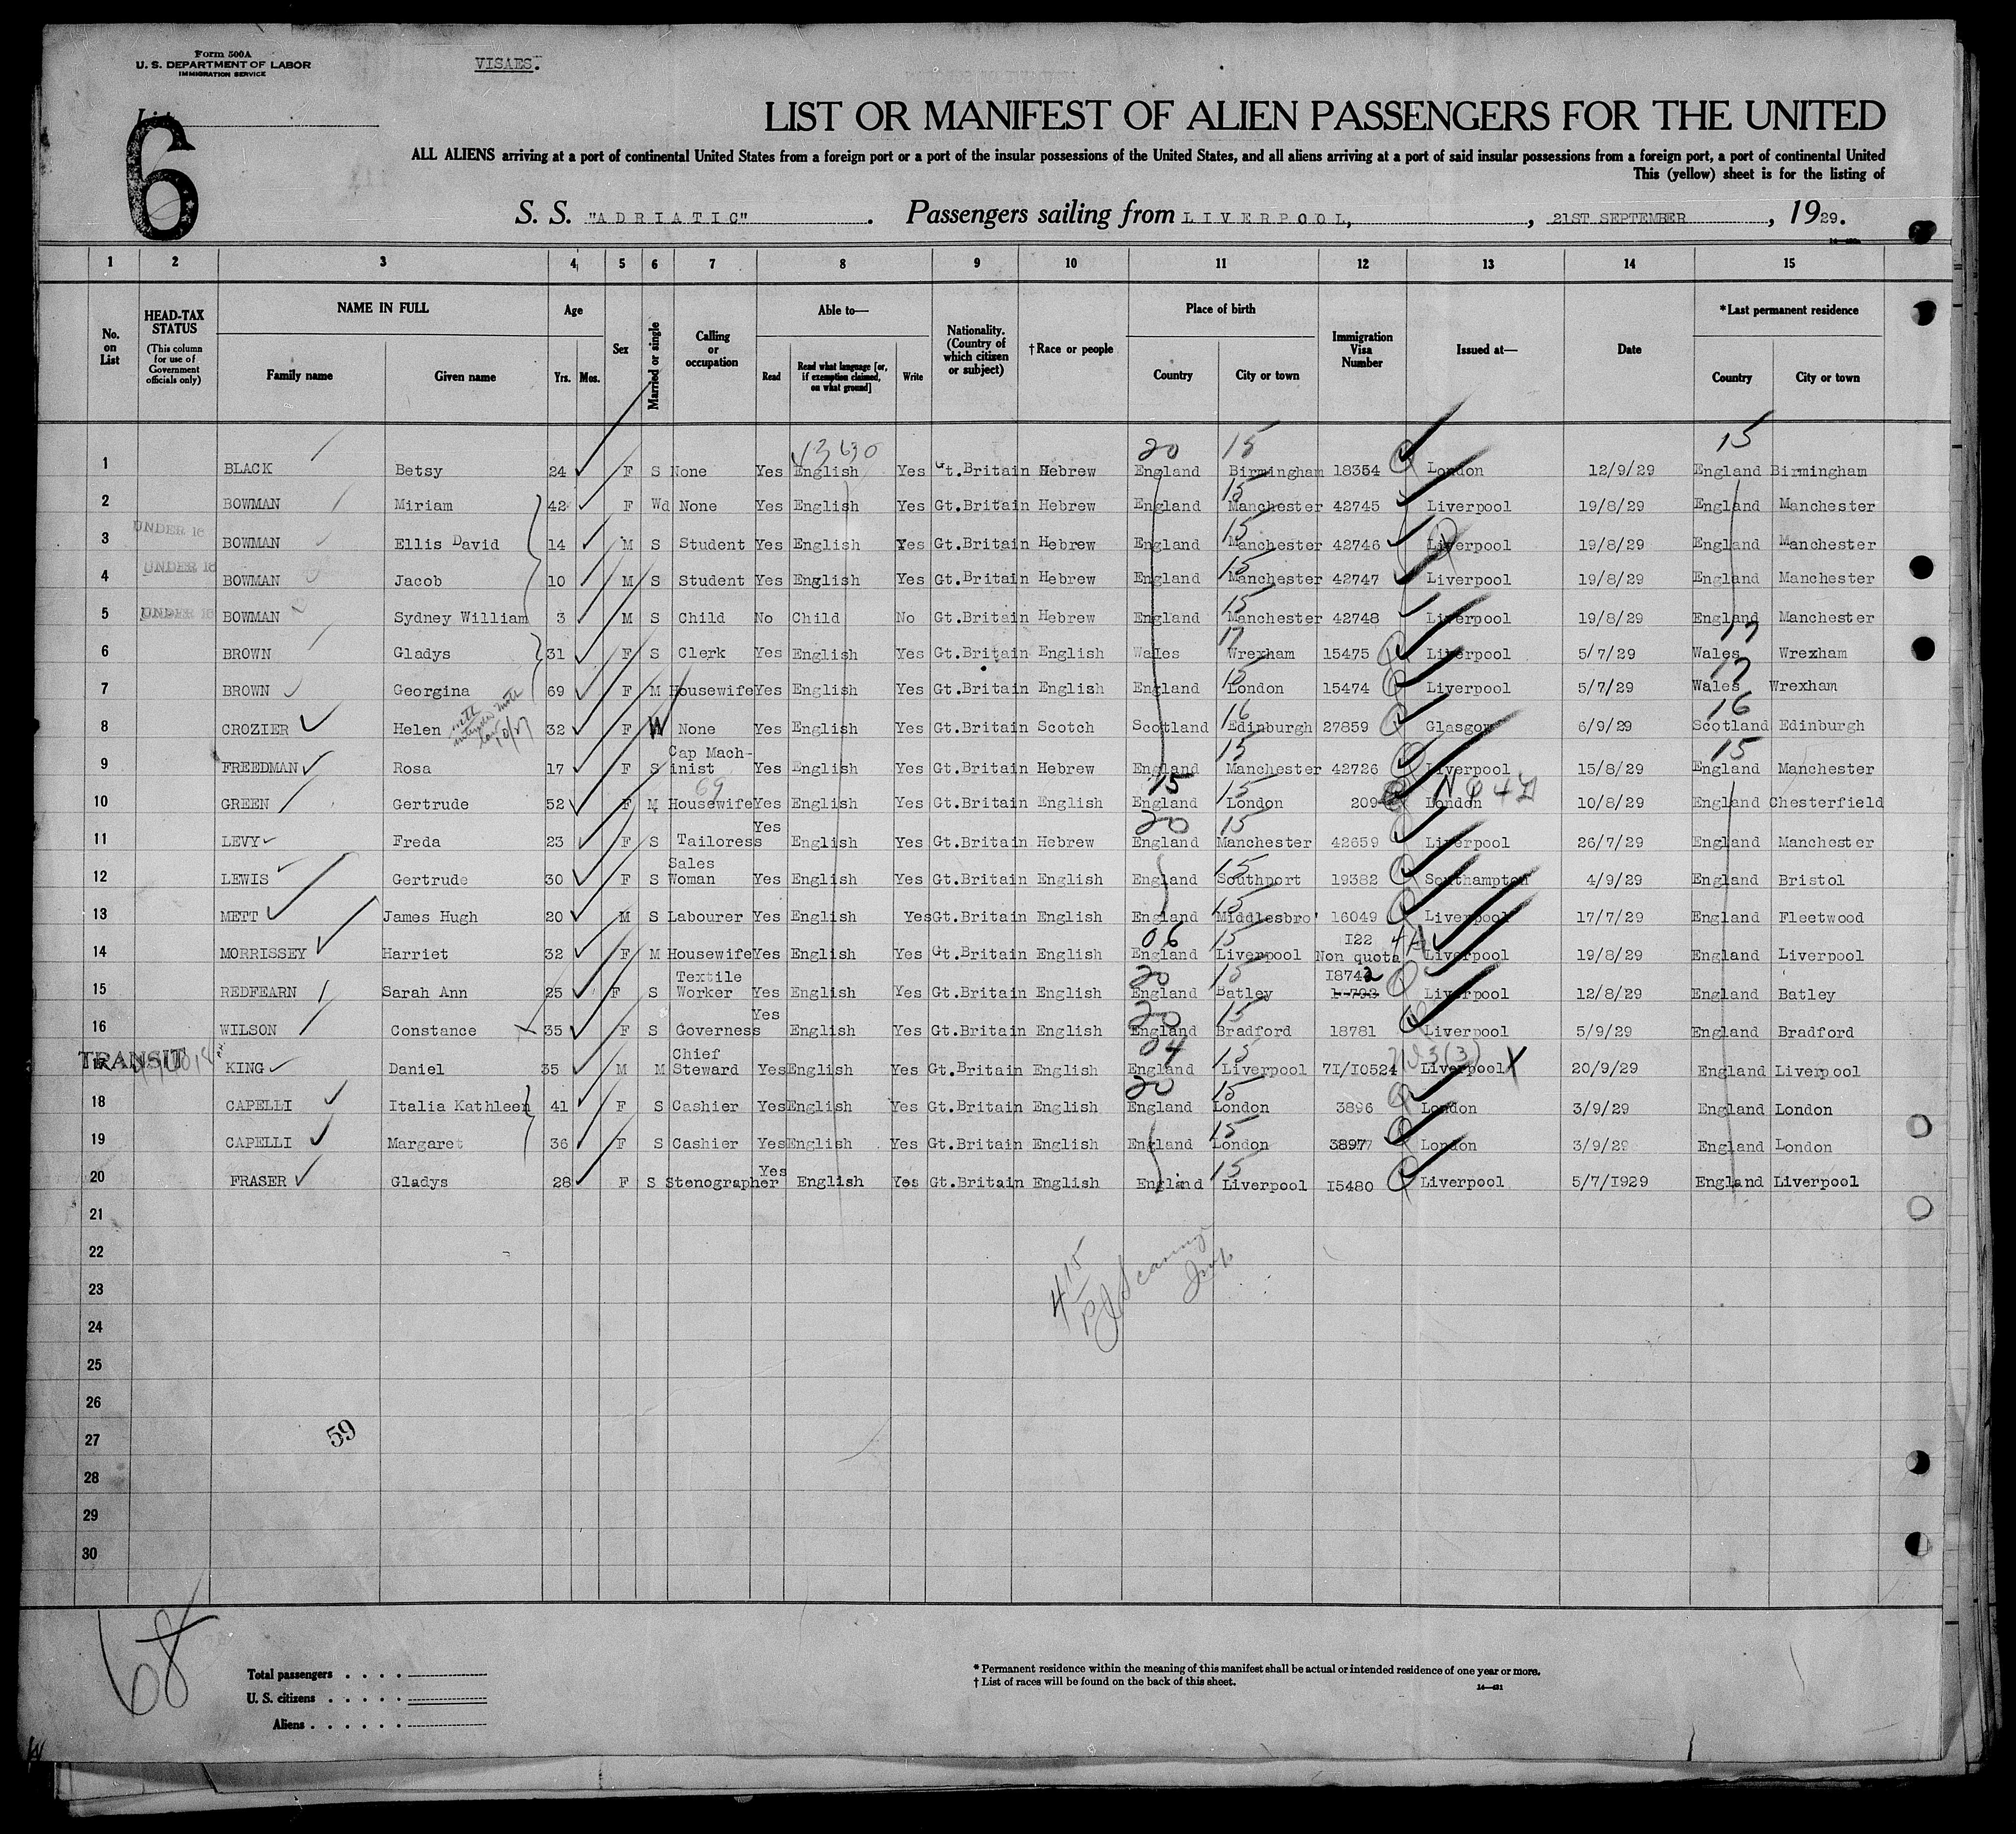 Form 500A
U. S. DEPARTMENT OF LABOR
IMMIGRATION SERVICE
VISAES.
List
6
LIST OR MANIFEST OF ALIEN PASSENGERS FOR THE UNITED
ALL ALIENS arriving at a port of continental United States from a foreign port or a port of the insular possessions of the United States, and all aliens arriving at a port of said insular possessions from a foreign port, a port of continental United
This (yellow) sheet is for the listing of
S. S. "ADRIATIC" . Passengers sailing from LIVERPOOL, , 21ST SEPTEMBER , 1929.
1 2 3 4 5 6 7 8 9 10 11 12 13 14 15
No. on List
HEAD-TAX STATUS (This column for use of Government officials only)
NAME IN FULL
Family name Given name
Age
Yrs. Mos.
Sex
Married or single
Calling or occupation
Able to—
Read
Read what language [or, if exemption claimed, on what ground]
Write
Nationality. (Country of which citizen or subject)
†Race or people
Place of birth
Country City or town
Immigration Visa Number
Issued at—
Date
*Last permanent residence
Country City or town
20 15 15
1 BLACK Betsy 24 F S None Yes English Yes Gt.Britain Hebrew England Birmingham 18354 London 12/9/29 England Birmingham
15
2 BOWMAN Miriam 42 F Wd None Yes English Yes Gt.Britain Hebrew England Manchester 42745 Liverpool 19/8/29 England Manchester
UNDER 16 15
3 BOWMAN Ellis David 14 M S Student Yes English Yes Gt.Britain Hebrew England Manchester 42746 Liverpool 19/8/29 England Manchester
UNDER 16 15
4 BOWMAN Jacob 10 M S Student Yes English Yes Gt.Britain Hebrew England Manchester 42747 Liverpool 19/8/29 England Manchester
15
5 UNDER 16 BOWMAN Sydney William 3 M S Child No Child No Gt.Britain Hebrew England Manchester 42748 Liverpool 19/8/29 England Manchester
17 17
6 BROWN Gladys 31 F S Clerk Yes English Yes Gt.Britain English Wales Wrexham 15475 Liverpool 5/7/29 Wales Wrexham
15 17
7 BROWN Georgina 69 F M Housewife Yes English Yes Gt.Britain English England London 15474 Liverpool 5/7/29 Wales Wrexham
16 16
8 CROZIER Helen 32 F W None Yes English Yes Gt.Britain Scotch Scotland Edinburgh 27859 Glasgow 6/9/29 Scotland Edinburgh
15 15
9 FREEDMAN Rosa 17 F S Cap Mach-inist Yes English Yes Gt.Britain Hebrew England Manchester 42726 Liverpool 15/8/29 England Manchester
69 15 15
10 GREEN Gertrude 52 F M Housewife Yes English Yes Gt.Britain English England London 209 London 10/8/29 England Chesterfield
20 15
11 LEVY Freda 23 F S Tailoress Yes English Yes Gt.Britain Hebrew England Manchester 42659 Liverpool 26/7/29 England Manchester
15
12 LEWIS Gertrude 30 F S Sales Woman Yes English Yes Gt.Britain English England Southport 19382 Southampton 4/9/29 England Bristol
15
13 METT James Hugh 20 M S Labourer Yes English Yes Gt.Britain English England Middlesbro' 16049 Liverpool 17/7/29 England Fleetwood
06 15
14 MORRISSEY Harriet 32 F M Housewife Yes English Yes Gt.Britain English England Liverpool I22 Non quota Liverpool 19/8/29 England Liverpool
20 15
15 REDFEARN Sarah Ann 25 F S Textile Worker Yes English Yes Gt.Britain English England Batley I8742 Liverpool 12/8/29 England Batley
20 15
16 WILSON Constance 35 F S Governess Yes English Yes Gt.Britain English England Bradford 18781 Liverpool 5/9/29 England Bradford
04 15
TRANSIT KING Daniel 35 M M Chief Steward Yes English Yes Gt.Britain English England Liverpool 7I/I0524 Liverpool 20/9/29 England Liverpool
20 15
18 CAPELLI Italia Kathleen 41 F S Cashier Yes English Yes Gt.Britain English England London 3896 London 3/9/29 England London
15
19 CAPELLI Margaret 36 F S Cashier Yes English Yes Gt.Britain English England London 3897 London 3/9/29 England London
15
20 FRASER Gladys 28 F S Stenographer Yes English Yes Gt.Britain English England Liverpool I5480 Liverpool 5/7/I929 England Liverpool
21
22
23
24
25
26
27
28
29
30
59
68
Total passengers . . . .
U. S. citizens . . . . .
Aliens . . . . . .
* Permanent residence within the meaning of this manifest shall be actual or intended residence of one year or more.
† List of races will be found on the back of this sheet.
14—421